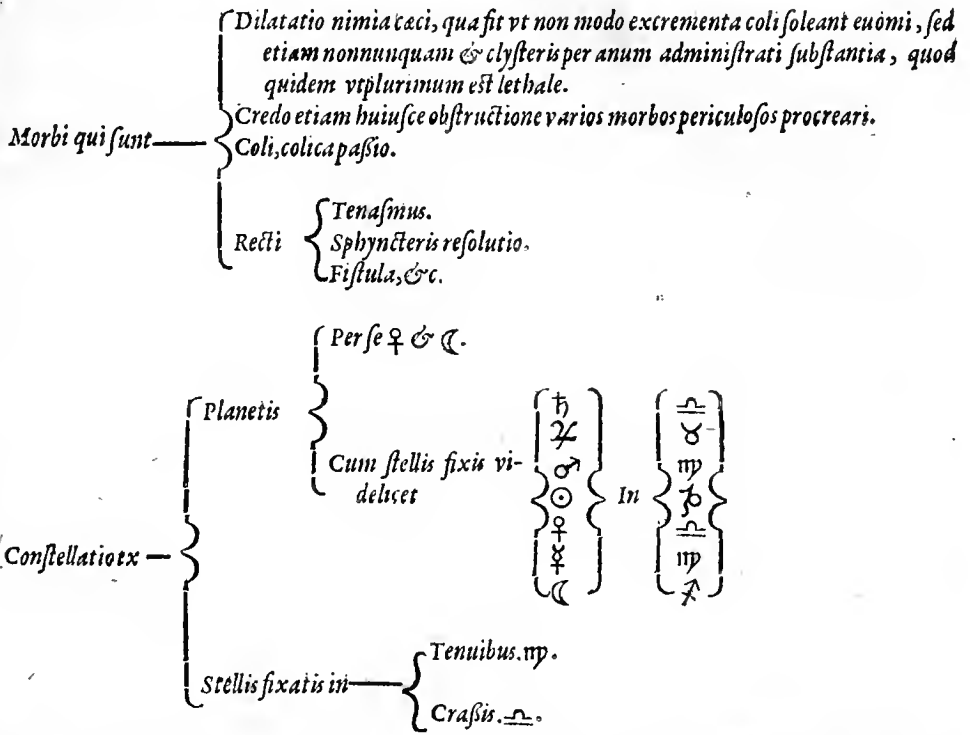 Dilatatio nimia cæci, qua fit vt non modo excrementa coli ſoleant euomi, ſed
etiam nonnunquam & clyſteris per anum adminiſtrati ſubſtantia, quod
quidem vtplurimum eſt lethale.
Credo etiam huiuſce obſtructione varios morbos periculoſos procreari.
Morbi qui ſunt
Coli, colica paſſio.
Recti
Tenaſmus.
Sphyncteris reſolutio.
Fiſtula, &c.
Per ſe ♀ & ☾.
Planetis
Cum ſtellis fixis vi-
delicet
♄
♃
♂
☉
♀
☿
☾
In
♎
♉
♍
♑
♎
♍
♐
Conſtellatio ex
Stellis fixatis in
Tenuibus. ♍.
Craſſis. ♎.